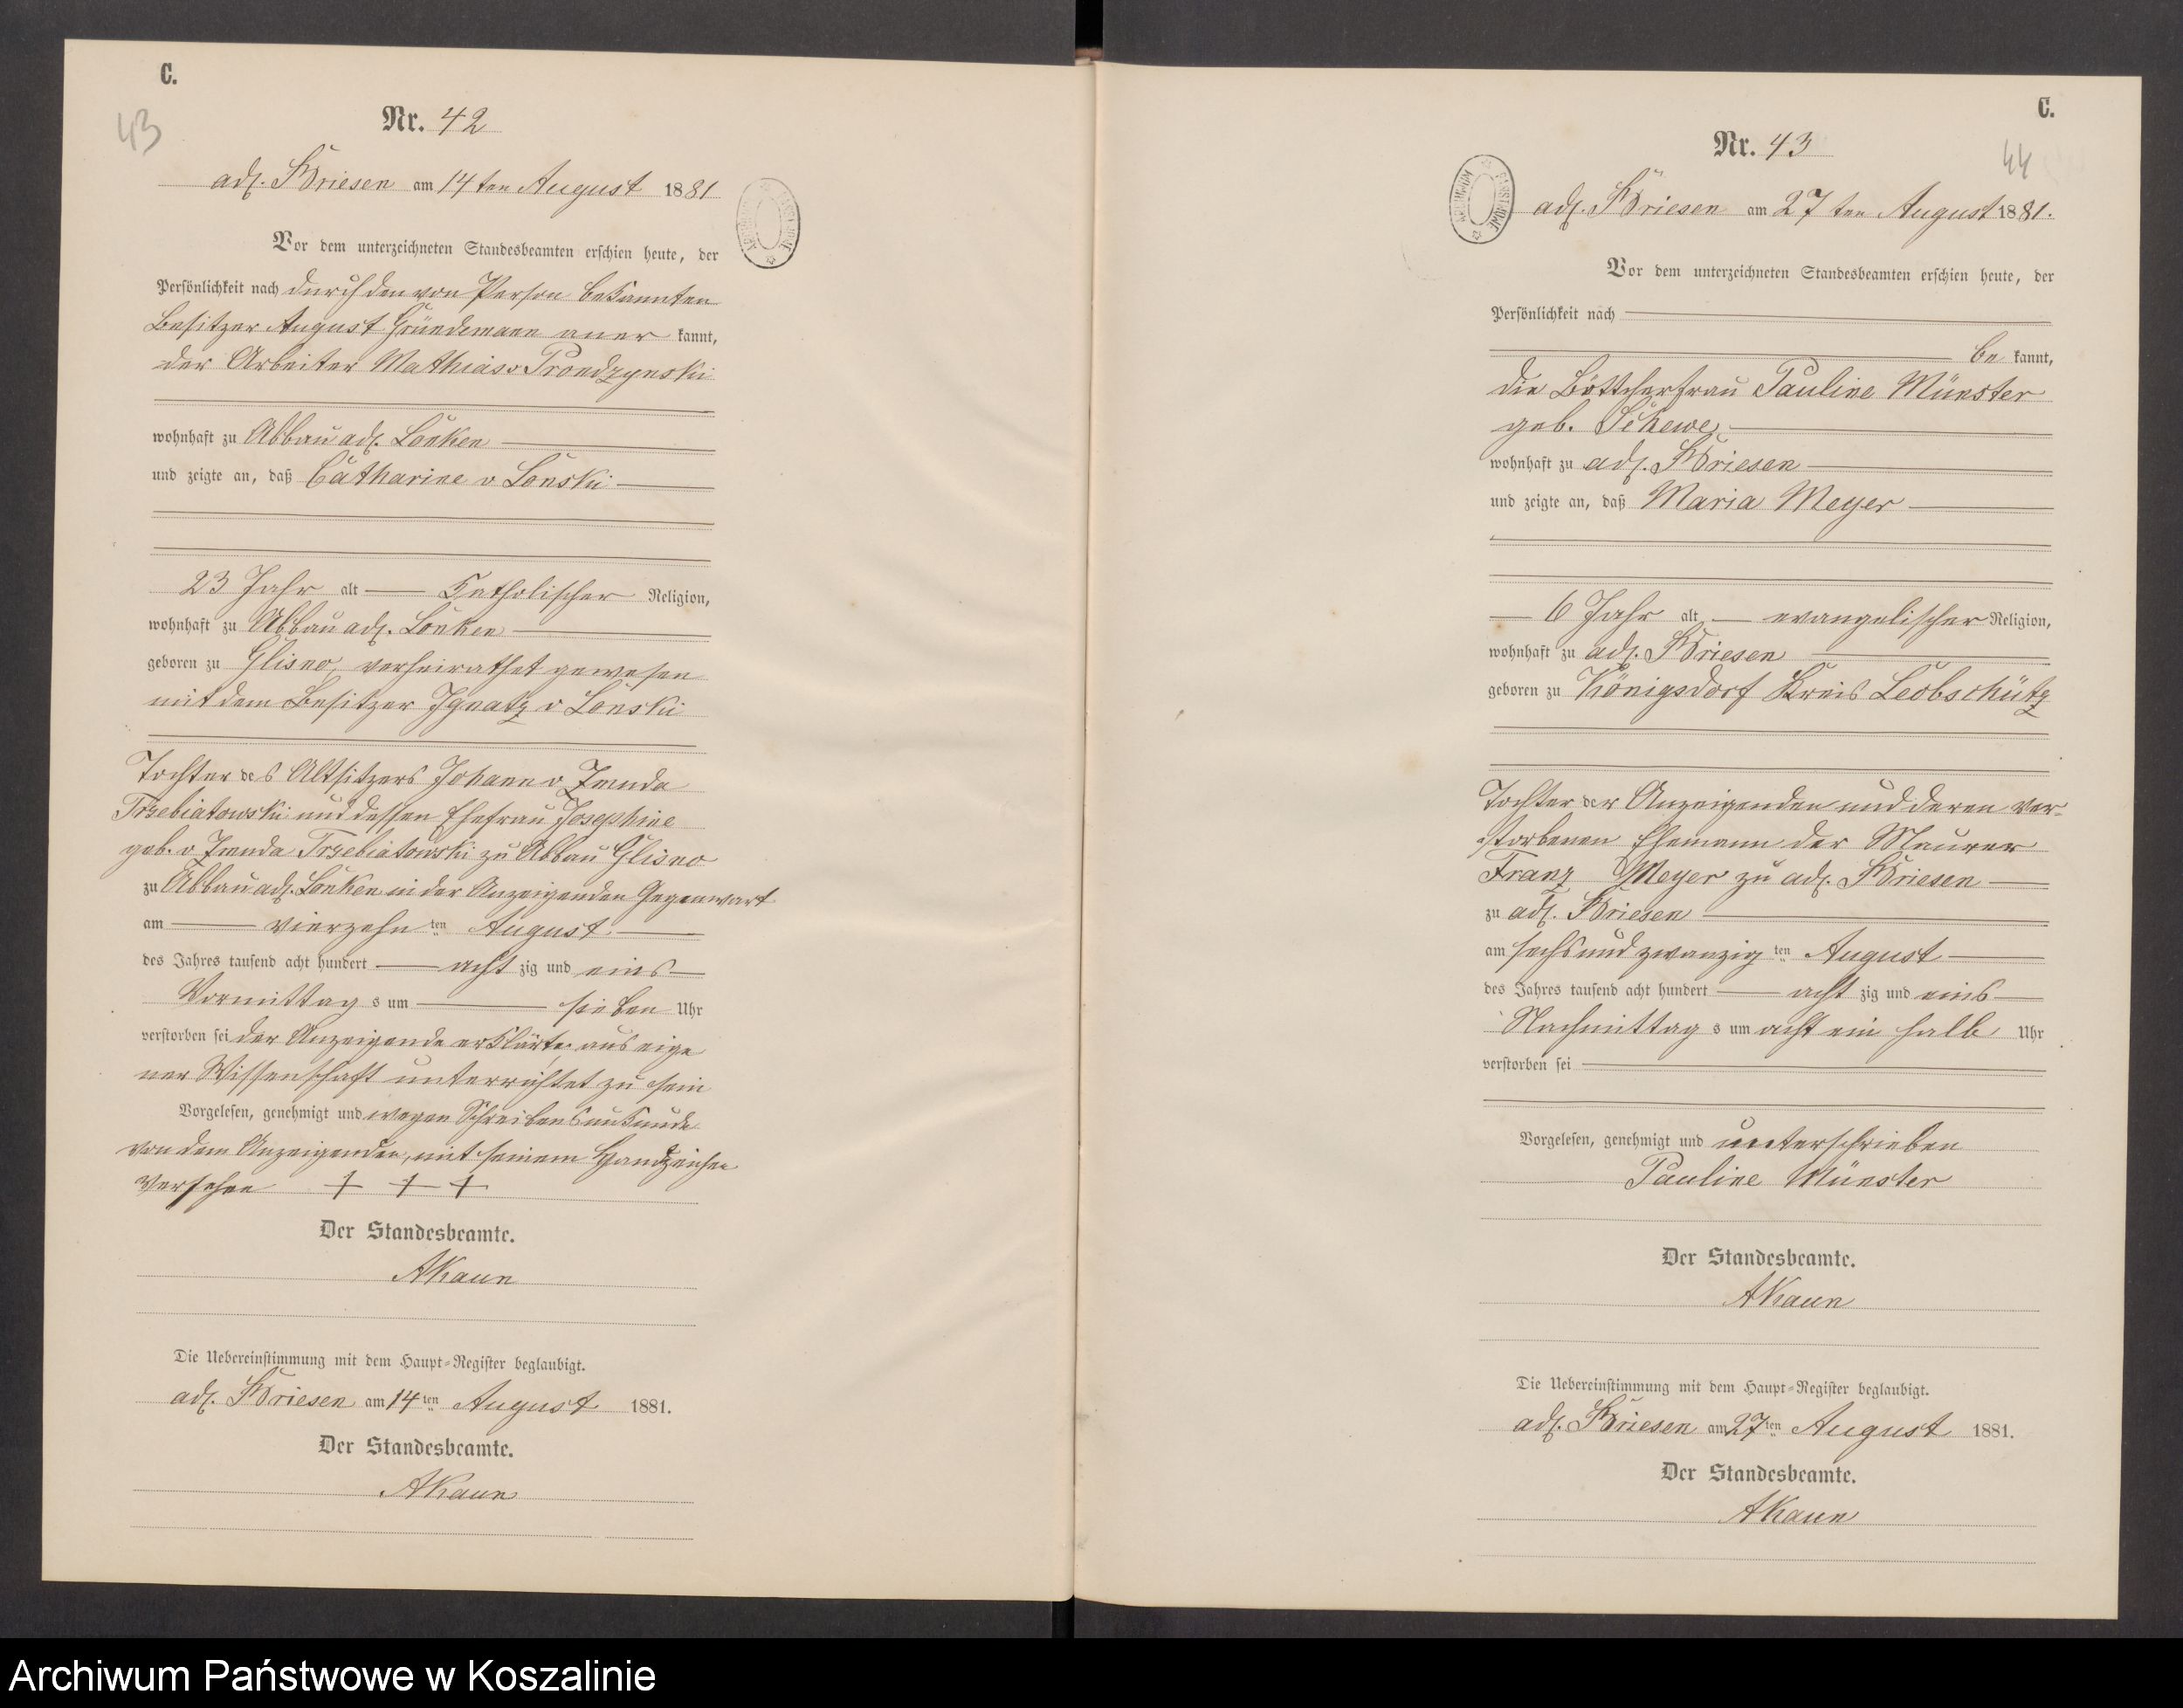 C.
43
Nr. 42
adl. Briesen am 14ten August 1881
Vor dem unterzeichneten Standesbeamten erschien heute, der
Persönlichkeit nach durch den von Person bekannten
Besitzer August Gründemann aner kannt,
der Arbeiter Mathias v Prondzynski
wohnhaft zu Abbau adl. Lonken
und zeigte an, daß Catharine v Lonski
23 Jahr alt Katholischer Religion,
wohnhaft zu Abbau adl. Lonken
geboren zu Glisno, verheirathet gewesen
mit dem Besitzer Ignatz v Lonski
Tochter des Altsitzers Johann v Zmuda
Trzebiatowski und dessen Ehefrau Josephine
geb. v Zmuda Trzebiatowski zu Abbau Glisno
zu Abbau adl. Lonken in der Anzeigenden Gegenwart
am vierzehn ten August
des Jahres tausend acht hundert acht zig und eins
Vormittag s um sieben Uhr
verstorben sei der Anzeigende erklärte, aus eige
ner Wissenschaft unterrichtet zu sein
Vorgelesen, genehmigt und wegen Schreibensunkunde
von dem Anzeigenden, mit seinem Handzeichen
versehen + + +
Der Standesbeamte.
AKaun
Die Uebereinstimmung mit dem Haupt-Register beglaubigt.
adl. Briesen am 14ten August 1881.
Der Standesbeamte.
AKaun
C.
44
Nr. 43
ARCHIWUM PAŃSTWOWE
adl. Briesen am 27ten August 1881.
Vor dem unterzeichneten Standesbeamten erschien heute, der
Persönlichkeit nach
be kannt,
die Böttcherfrau Pauline Münster
geb.
wohnhaft zu adl. Briesen
und zeigte an, daß Maria Meyer
6 Jahr alt evangelischer Religion,
wohnhaft zu adl. Briesen
geboren zu Königsdorf Kreis Leobschütz
Tochter der Anzeigenden und deren ver-
storbenen Ehemann der Maurer
Franz Meyer zu adl. Briesen
zu adl. Briesen
am sechsundzwanzig ten August
des Jahres tausend acht hundert acht zig und eins
Nachmittag s um acht ein halb Uhr
verstorben sei
Vorgelesen, genehmigt und unterschrieben
Pauline Münster
Der Standesbeamte.
AKaun
Die Uebereinstimmung mit dem Haupt-Register beglaubigt.
adl. Briesen am 27ten August 1881.
Der Standesbeamte.
AKaun
Archiwum Państwowe w Koszalinie